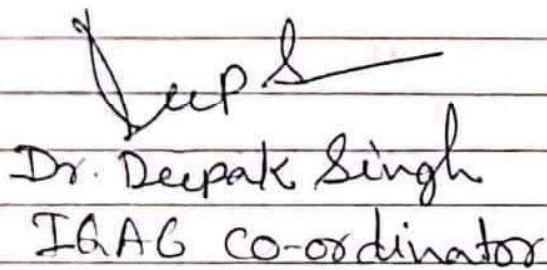 Deep S
Dr. Deepak Singh
IQAG co-ordinator